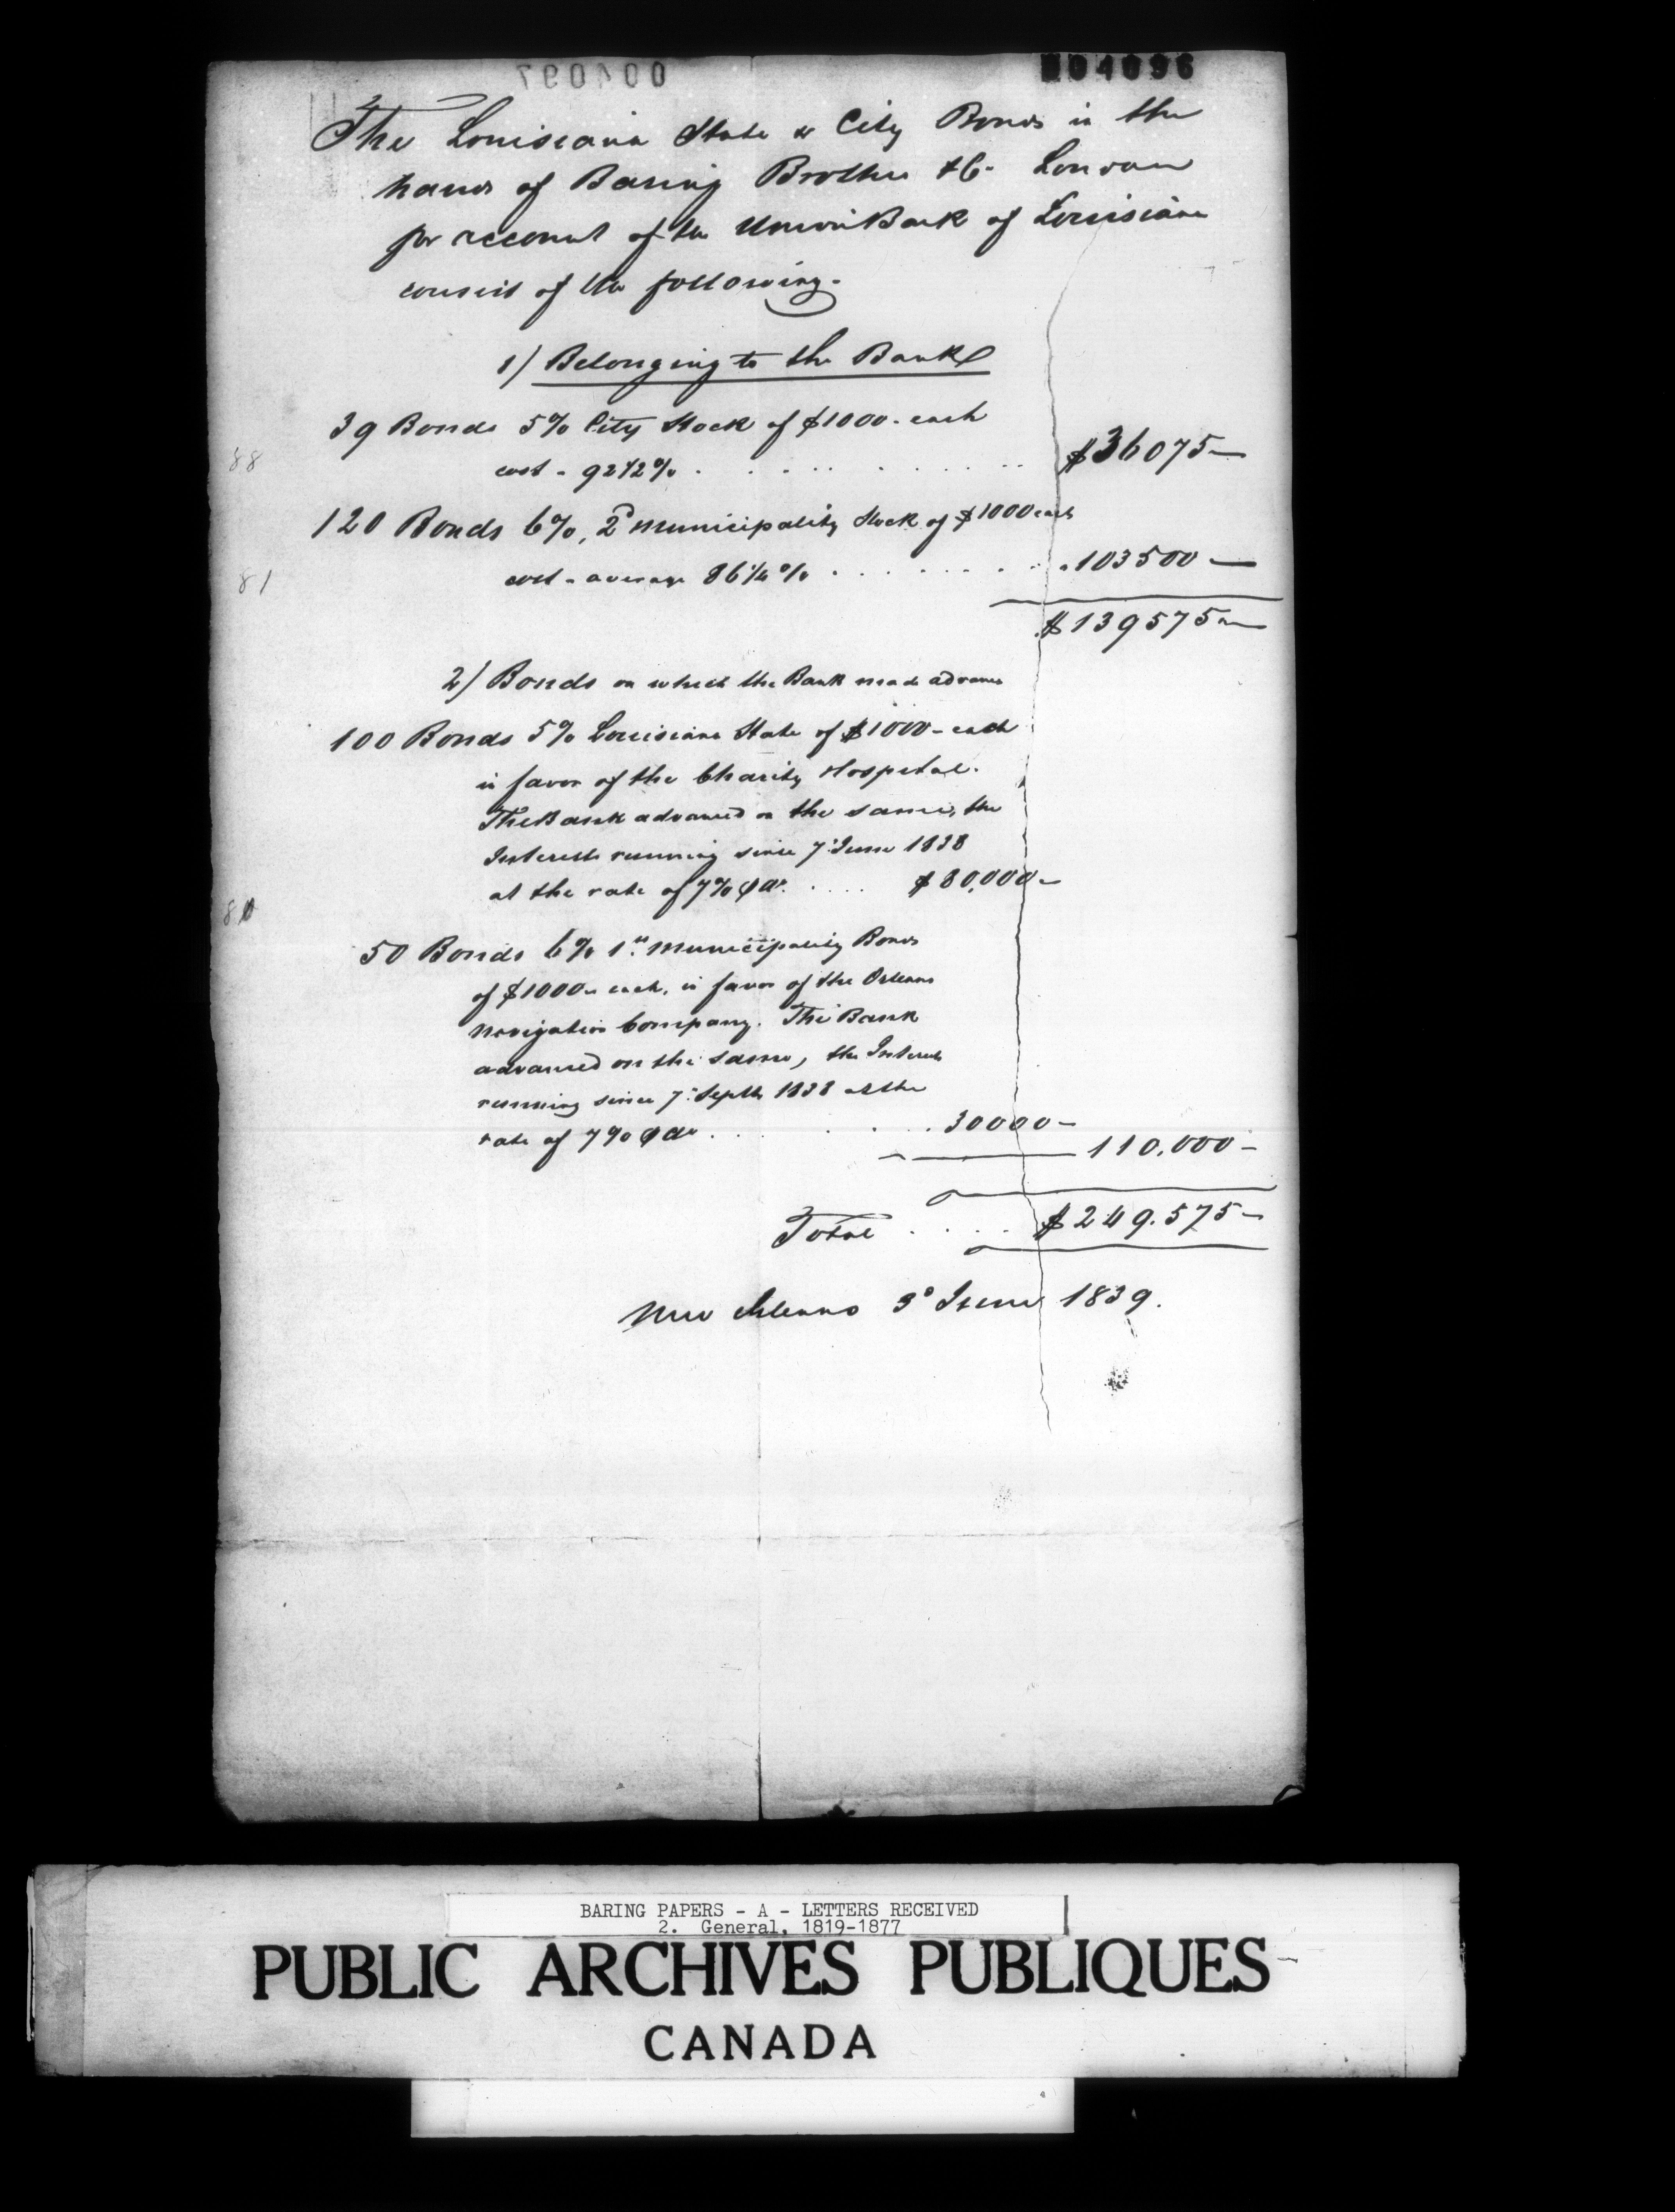 004097
004096
The Louisiana State & City Bonds in the
hands of Baring Brothers & Co. London
for account of the Union Bank of Louisiana
consist of the following.
1) Belonging to the Bank
39 Bonds 5% City Stock of $1000. each
88
cost - 92 1/2 % . . . . . . . . $36075—
120 Bonds 6%, 2d Municipality Stock of $1000 each
81
cost - average 86 1/4 % . . . . . . . . 103500—
$139575—
2) Bonds on which the Bank made advances
100 Bonds 5% Louisiana State of $1000- each
in favor of the Charity Hospital.
The Bank advanced on the same, the
Interests running since 7 June 1838
at the rate of 7% pr ao. . . . . $80,000-
80
50 Bonds 6% 1st Municipality Bonds
of $1000- each, in favor of the Orleans
Navigation Company. The Bank
advanced on the same, the Interests
running since 7 Septb 1838 at the
rate of 7% pr ao . . . . 30000-
110.000-
Total . . . . $249.575-
New Orleans 3d June 1839.
BARING PAPERS - A - LETTERS RECEIVED
2. General, 1819-1877
PUBLIC ARCHIVES PUBLIQUES
CANADA